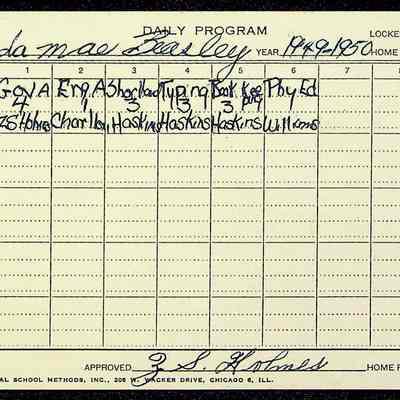 DAILY PROGRAM
LOCKE
da mae Beasley YEAR 1949-1950 HOME
1 2 3 4 5 6 7 8
Gov A Eng A Shorthand Typing Book Keeping Phy Ed
4 1 3 3 3
ZS Holmes Haskins Haskins Haskins Williams
APPROVED Z. S. Holmes HOME R
AL SCHOOL METHODS, INC., 206 W. WACKER DRIVE, CHICAGO 6, ILL.